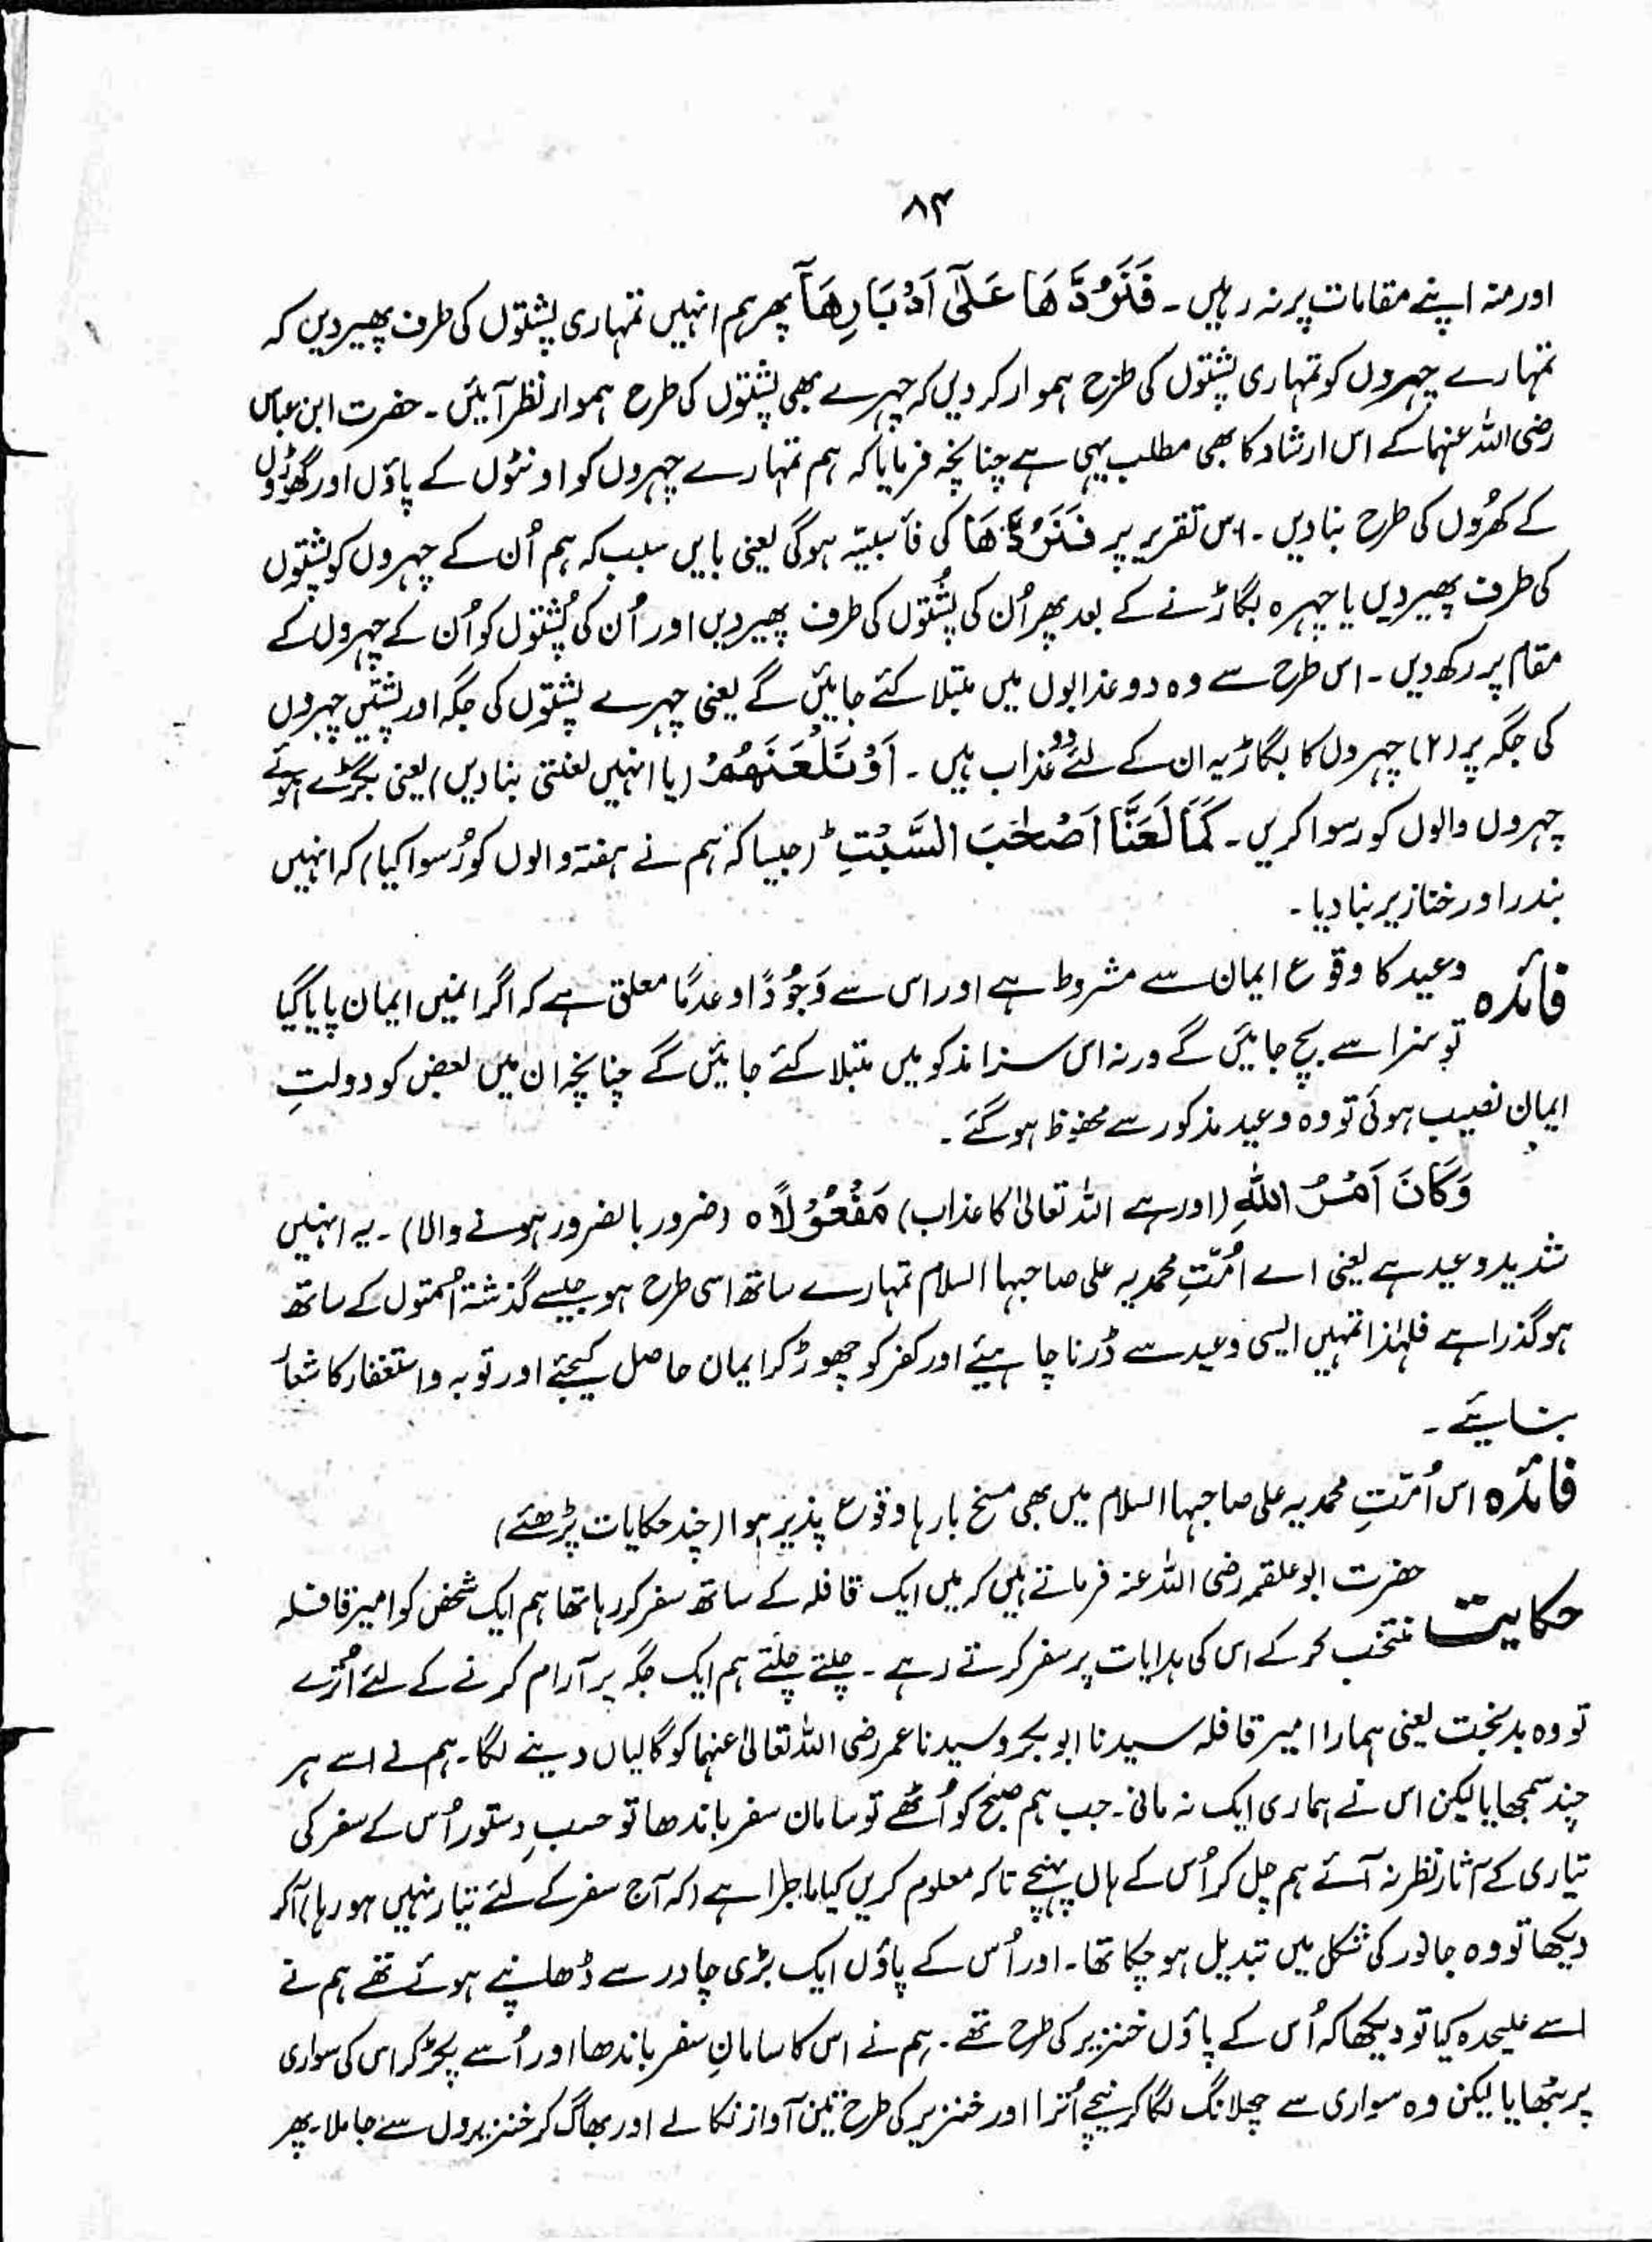 ۸۴
اور منہ اپنے مقامات پر نہ رہیں ۔ فَنَرُدَّهَا عَلٰٓى اَدْبَارِهَآ پھر ہم انہیں تمہاری پشتوں کی طرف پھیر دیں کہ
تمہارے چہروں کو تمہاری پشتوں کی طرح ہموار کر دیں کہ چہرے بھی پشتوں کی طرح ہموار نظر آئیں ۔ حضرت ابن عباس
رضی اللہ عنہما کے اس ارشاد کا بھی مطلب یہی ہے چنانچہ فرمایا کہ ہم تمہارے چہروں کو اونٹوں کے پاؤں اور گھوڑوں
کے کھُروں کی طرح بنا دیں ۔ اس تقریر پر فَنَرُدَّهَا کی فأ سببیّہ ہوگی یعنی بایں سبب کہ ہم اُن کے چہروں کو پشتوں
کی طرف پھیر دیں یا چہرہ بگاڑنے کے بعد پھر اُن کی پشتوں کی طرف پھیر دیں اور اُن کی پُشتوں کو اُن کے چہروں کے
مقام پر رکھ دیں ۔ اس طرح سے وہ دو عذابوں میں مبتلا کئے جائیں گے یعنی چہرے پشتوں کی جگہ اور پشتیں چہروں
کی جگہ پر (۲) چہروں کا بگاڑ یہ ان کے لئے دو عذاب ہیں ۔ اَوْ نَلْعَنَهُمْ (یا انہیں لعنتی بنا دیں) یعنی بگڑے ہوئے
چہروں والوں کو رسوا کریں ۔ كَمَا لَعَنَّآ اَصْحٰبَ السَّبْتِ ؕ (جیسا کہ ہم نے ہفتہ والوں کو رُسوا کیا) کہ انہیں
بندر اور خنازیر بنا دیا ۔
فائدہ وعید کا وقوع ایمان سے مشروط ہے اور اس سے وَجُودًا و عدمًا معلق ہے کہ اگر انمیں ایمان پایا گیا
تو سزا سے بچ جائیں گے ورنہ اس سزا مذکو میں مبتلا کئے جائیں گے چنانچہ ان میں بعض کو دولتِ
ایمان نصیب ہوئی تو وہ وعید مذکور سے محفوظ ہو گئے ۔
وَكَانَ اَمْرُ اللّٰهِ (اور ہے اللہ تعالیٰ کا عذاب) مَفْعُوْلًا ٥ (ضرور بالضرور ہونے والا) ۔ یہ انہیں
شدید وعید ہے یعنی اے اُمّتِ محمدیہ علی صاحبہا السلام تمہارے ساتھ اسی طرح ہو جیسے گذشتہ اُمتوں کے ساتھ
ہو گذرا ہے فلہٰذا تمہیں ایسی وعید سے ڈرنا چاہیئے اور کفر کو چھوڑ کر ایمان حاصل کیجئے اور توبہ و استغفار کا شعار
بنایئے ۔
فائدہ اس اُمّتِ محمدیہ علی صاحبہا السلام میں بھی مسخ بارہا وقوع پذیر ہوا (چند حکایات پڑھئے)
حکایت حضرت ابو علقمہ رضی اللہ عنہ فرماتے ہیں کہ میں ایک قافلہ کے ساتھ سفر کر رہا تھا ہم ایک شخص کو امیر قافلہ
منتخب کر کے اس کی ہدایات پر سفر کرتے رہے ۔ چلتے چلتے ہم ایک جگہ پر آرام کرنے کے لئے اُترے
تو وہ بدبخت یعنی ہمارا امیر قافلہ سیدنا ابو بکر و سیدنا عمر رضی اللہ تعالیٰ عنہما کو گالیاں دینے لگا ۔ ہم نے اسے ہر
چند سمجھایا لیکن اس نے ہماری ایک نہ مانی ۔ جب ہم صبح کو اُٹھے تو سامان سفر باندھا تو حسبِ دستور اُس کے سفر کی
تیاری کے آثار نظر نہ آئے ہم چل کر اُس کے ہاں پہنچے تاکہ معلوم کریں کیا ماجرا ہے (کہ آج سفر کے لئے تیار نہیں ہو رہا) آ کر
دیکھا تو وہ جانور کی شکل میں تبدیل ہو چکا تھا ۔ اور اُس کے پاؤں ایک بڑی چادر سے ڈھانپے ہوئے تھے ہم نے
اسے علیحدہ کیا تو دیکھا کہ اُس کے پاؤں خنزیر کی طرح تھے ۔ ہم نے اس کا سامانِ سفر باندھا اور اُسے پکڑ کر اس کی سواری
پر بٹھایا لیکن وہ سواری سے چھلانگ لگا کر نیچے اُترا اور خنزیر کی طرح تین آواز نکالے اور بھاگ کر خنزیروں سے جا ملا ۔ پھر